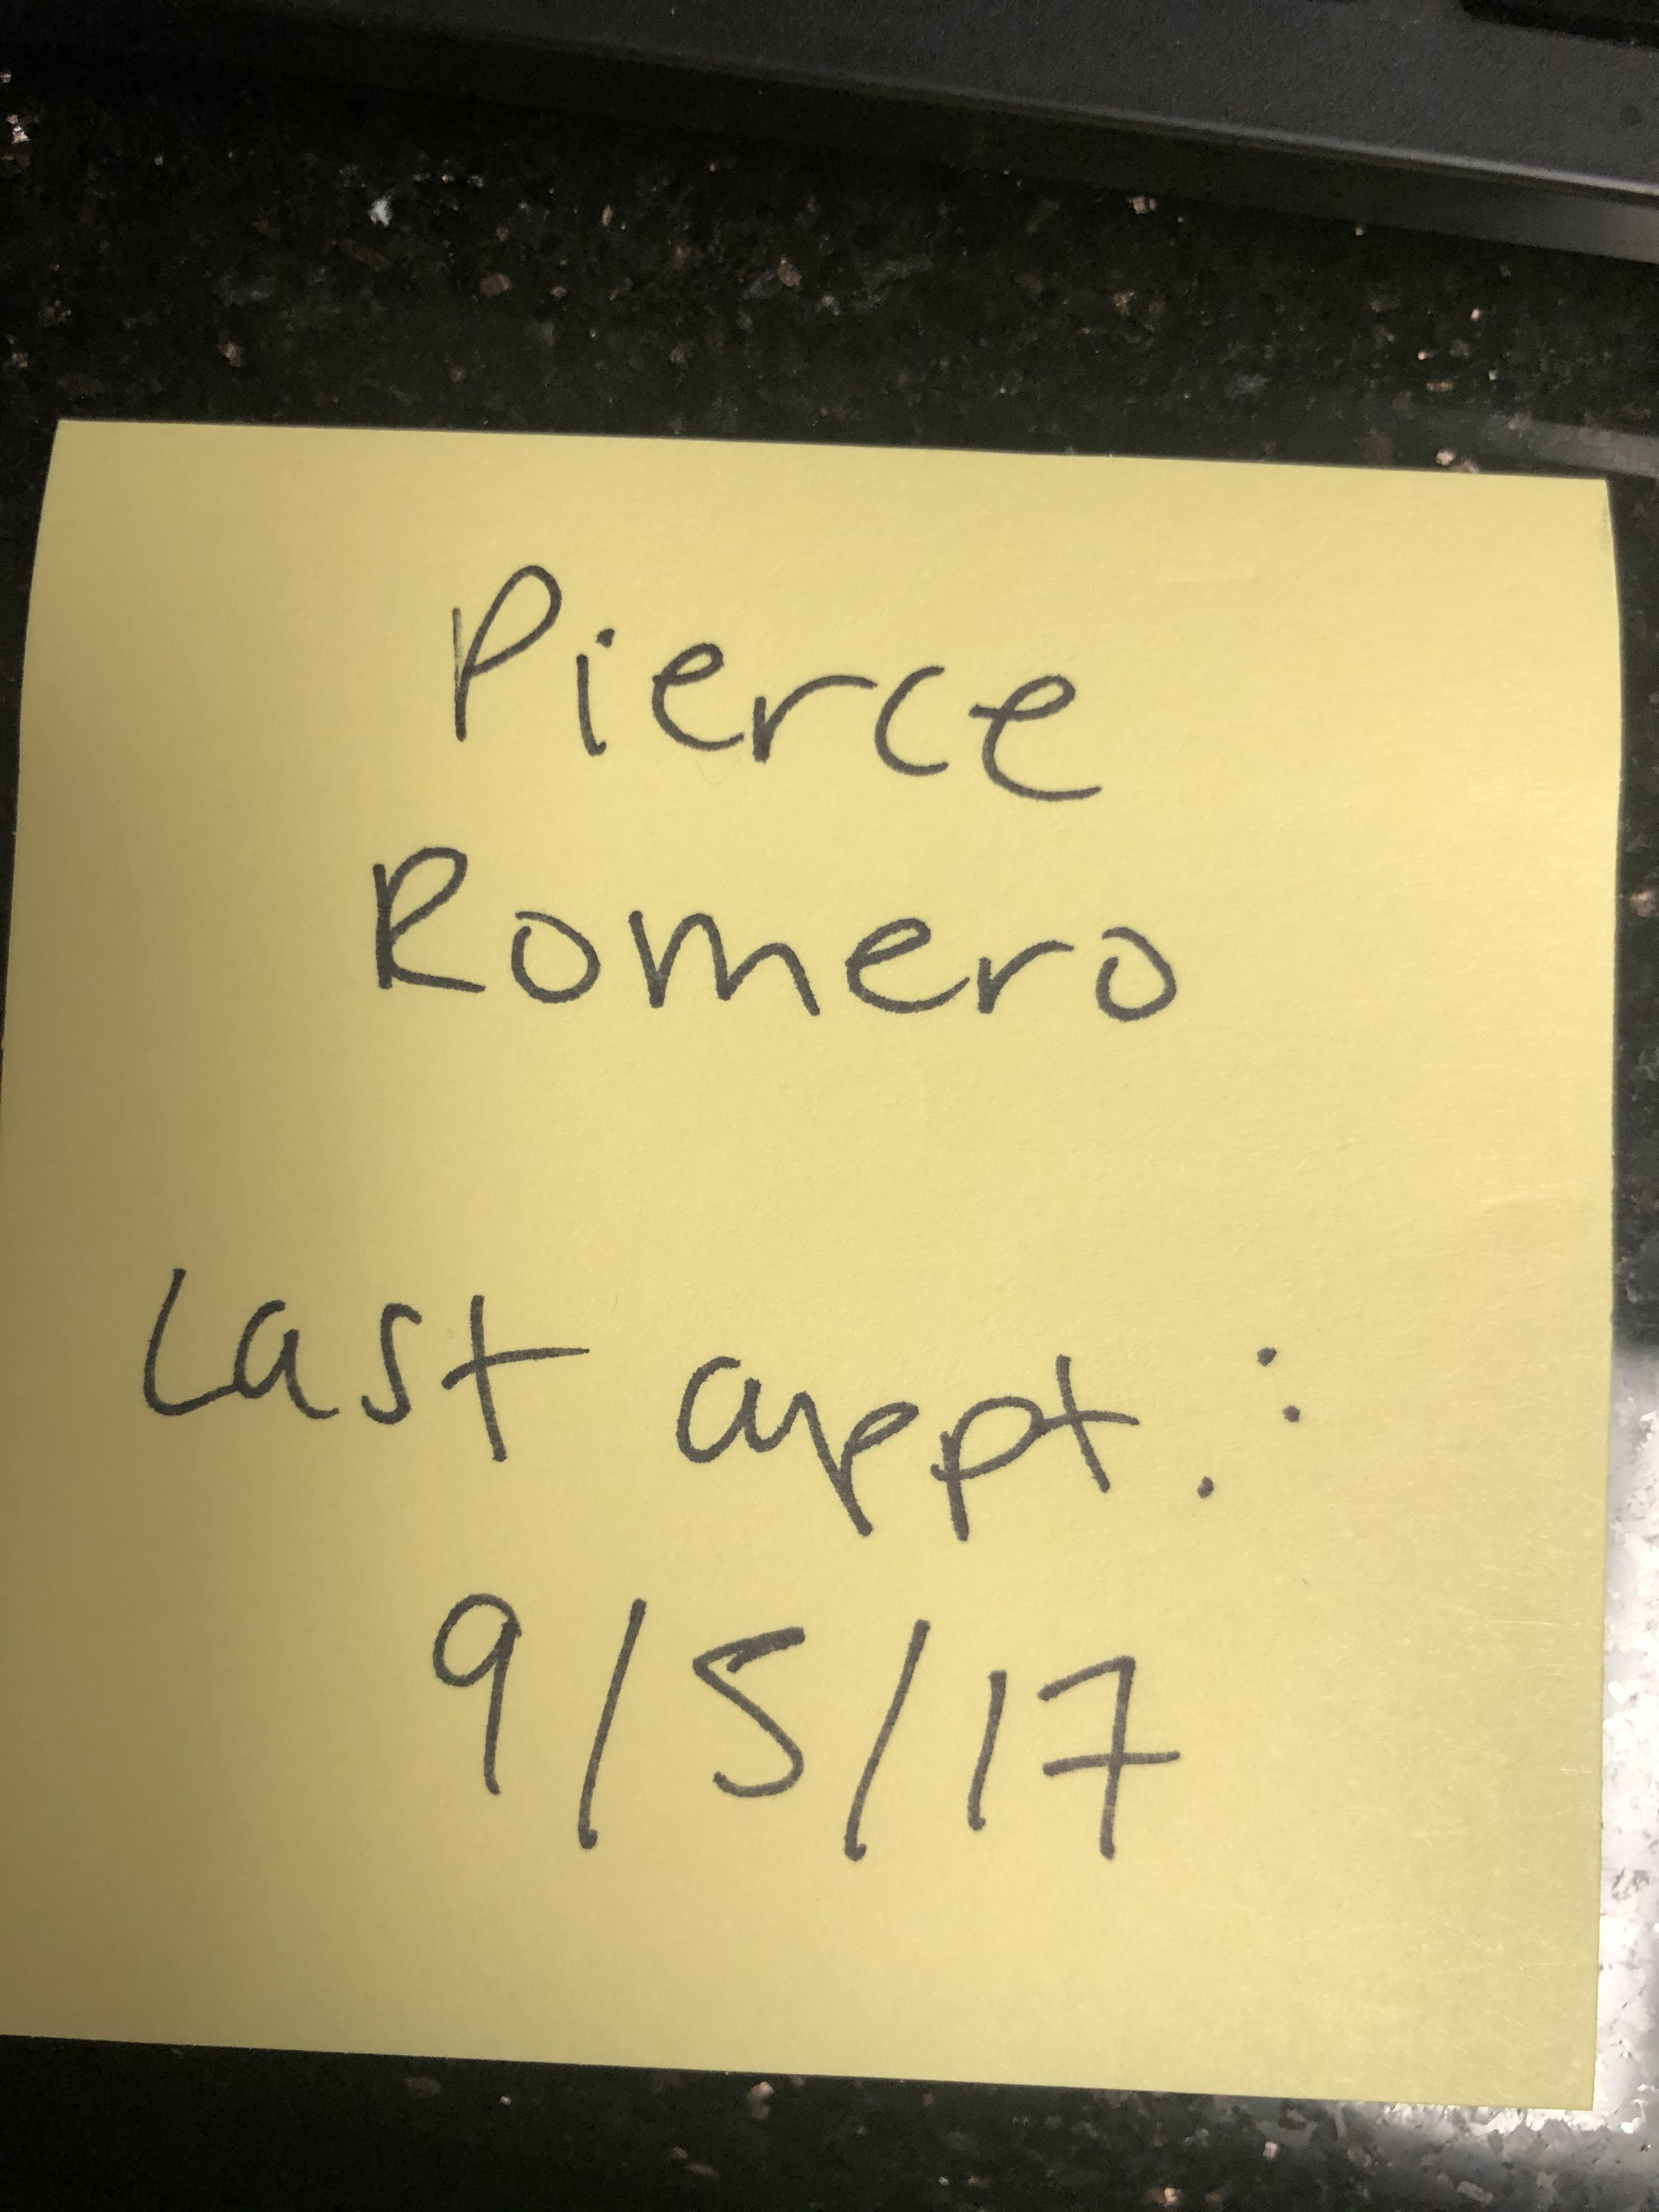 Pierce
Romero
Last appt.:
9/5/17